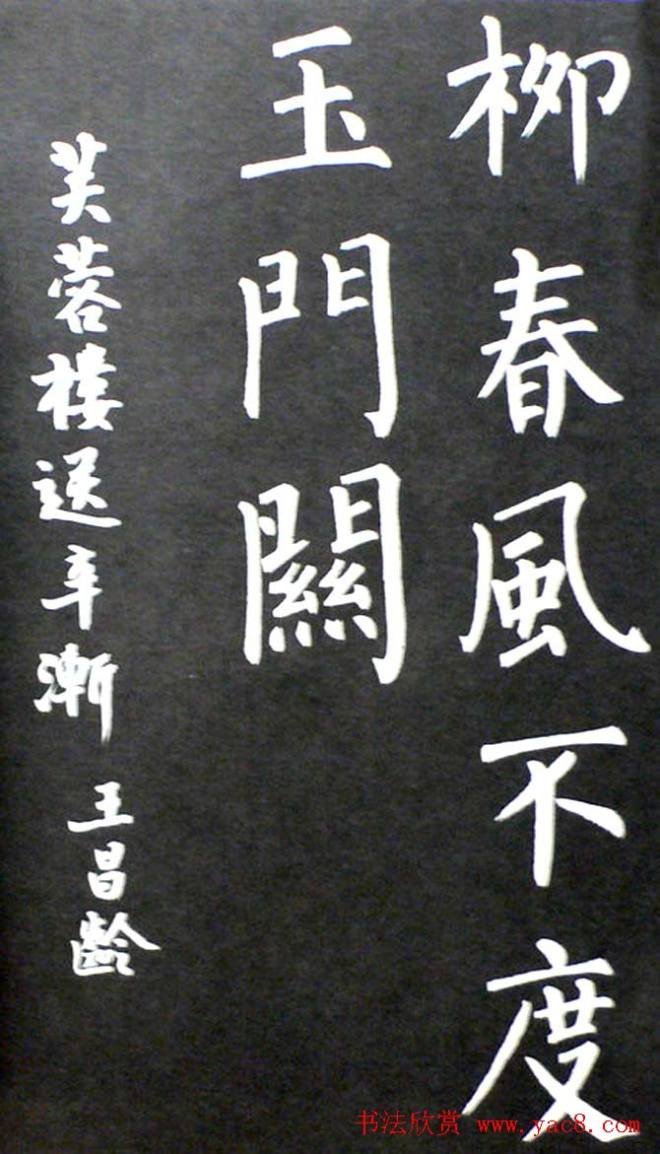 柳春風不度
玉門關
芙蓉樓送辛漸
王昌齡
书法欣赏 www.yac8.com